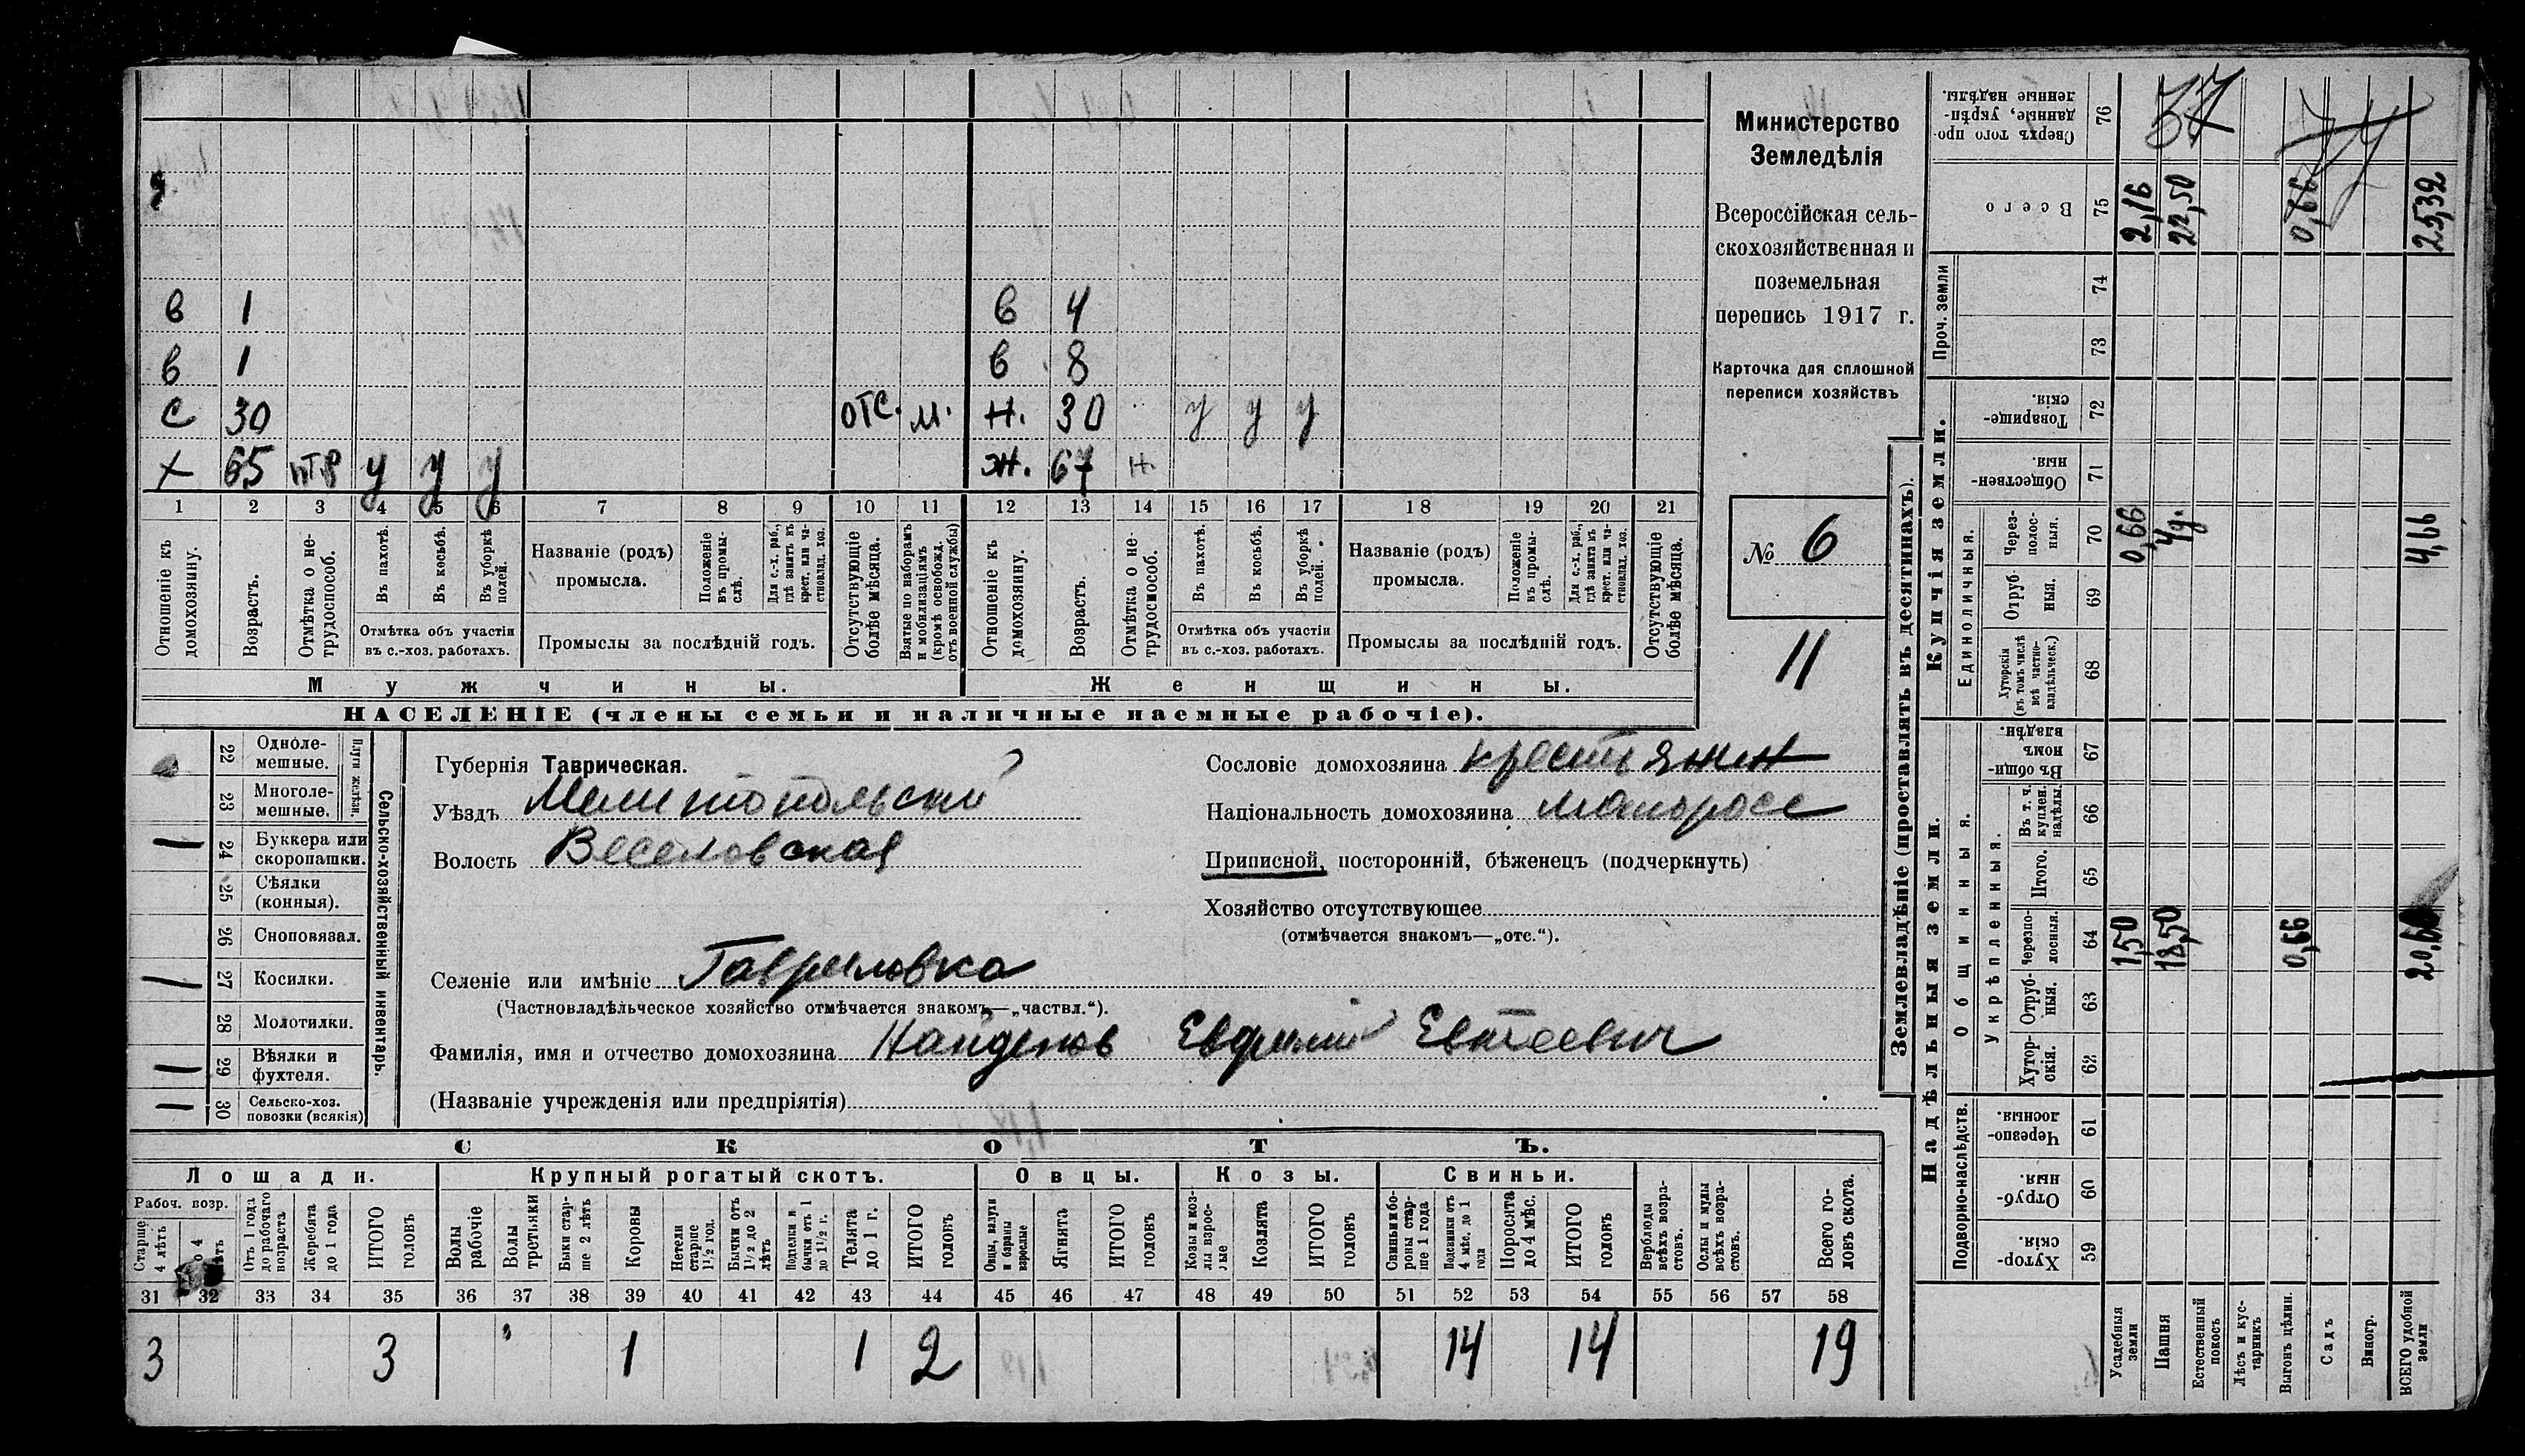 в 1 в 4
в 1 в 8
с 30 отс. м. н. 30 у у у
х 65 у у у ж. 67 н.
1 2 3 4 5 6 7 8 9 10 11 12 13 14 15 16 17 18 19 20 21
Отношеніе къ домохозяину.
Возрастъ.
Отмѣтка о нетрудоспособ.
Въ пахотѣ.
Въ косьбѣ.
Въ уборкѣ полей.
Отмѣтка объ участіи
въ с.-хоз. работахъ.
Названіе (родъ)
промысла.
Положеніе въ промыслѣ.
Для с.-х. раб., гдѣ занятъ въ крест. или частновлад. хоз.
Промыслы за послѣдній годъ.
Отсутствующіе болѣе мѣсяца.
Взятые по наборамъ и мобилизаціямъ (кромѣ освобожд. отъ военной службы)
Отношеніе къ домохозяину.
Возрастъ.
Отмѣтка о нетрудоспособ.
Въ пахотѣ.
Въ косьбѣ.
Въ уборкѣ полей.
Отмѣтка объ участіи
въ с.-хоз. работахъ.
Названіе (родъ)
промысла.
Положеніе въ промыслѣ.
Для с.-х. раб., гдѣ занята въ крест. или частновлад. хоз.
Промыслы за послѣдній годъ.
Отсутствующіе болѣе мѣсяца.
Мужчины.
Женщины.
НАСЕЛЕНІЕ (члены семьи и наличные наемные рабочіе).
Министерство
Земледѣлія
Всероссійская сель-
скохозяйственная и
поземельная
перепись 1917 г.
Карточка для сплошной
переписи хозяйствъ
№ 6
11
22 Одноле-
мешные.
23 Многоле-
мешные.
Плуги желѣзн.
24 Буккера или
скоропашки.
25 Сѣялки
(конныя).
26 Сноповязал.
27 Косилки.
28 Молотилки.
29 Вѣялки и
фухтеля.
30 Сельско-хоз.
повозки (всякія)
Сельско-хозяйственный инвентарь.
Губернія Таврическая.
Уѣздъ Мелитопольский
Волость Веселовская
Селеніе или имѣніе Гавриловка
(Частновладѣльческое хозяйство отмѣчается знакомъ—„частвл.“).
Фамилія, имя и отчество домохозяина Найденов Евфимий Евтеевич
(Названіе учрежденія или предпріятія)
Сословіе домохозяина крестьянин
Національность домохозяина малоросс
Приписной, посторонній, бѣженецъ (подчеркнуть)
Хозяйство отсутствующее
(отмѣчается знакомъ—„отс.“).
СКОТЪ.
Лошади. Крупный рогатый скотъ. Овцы. Козы. Свиньи.
Рабоч. возр.
Старше 4 лѣтъ
Отъ 1 года до рабочаго возраста
Жеребята до 1 года
ИТОГО головъ
Волы рабочіе
Волы третьяки
Быки старше 2 лѣтъ
Коровы
Нетели старше 1½ год.
Бычки отъ 1½ до 2 лѣтъ
Подтелки и бычки отъ 1 до 1½ г.
Телята до 1 г.
ИТОГО головъ
Овцы, валухи и бараны взрослые
Ягнята
ИТОГО головъ
Козы и козлы взрослые
Козлята
ИТОГО головъ
Свиньи и бороны старше 1 года
Подсвинки от 4 мѣс. до 1 года
Поросята до 4 мѣс.
ИТОГО головъ
Верблюды всѣхъ возрастовъ.
Ослы и мулы всѣхъ возрастовъ.
Всего головъ скота.
31 32 33 34 35 36 37 38 39 40 41 42 43 44 45 46 47 48 49 50 51 52 53 54 55 56 57 58
3 3 1 1 2 14 14 19
Землевладѣніе (проставлять въ десятинахъ).
Надѣльныя земли.
Купчія земли.
Проч. земли
Подворно-наслѣдств.
Общинныя.
Укрѣпленныя.
Единоличныя.
Сверхъ того про-
данные, укрѣп-
ленные надѣлы.
76 37
Всего
75 2,16 22,50 0,66 25,32
74
73
Товарище-
скія.
72
Обществен-
ныя.
71
Через-
полос-
ныя.
70 0,66 4 д. 4,66
Отруб-
ныя.
69
Хуторскія
(въ томъ числѣ
всѣ частно-
владѣльческ.)
68
Въ общи-
номъ
владѣн.
67
Въ т. ч.
куплен.
надѣлы.
66
Итого.
65
Черезпо-
лосныя.
64 1,50 18,50 0,66 20,66
Отруб-
ныя.
63
Хутор-
скія.
62
Черезпо-
лосныя.
61
Отруб-
ныя.
60
Хутор-
скія.
59
Усадебныя
земли
Пашня
Естественный
покосъ
Лѣсъ и кус-
тарникъ
Выгонъ цѣлин.
Садъ
Виногр.
ВСЕГО удобной
земли